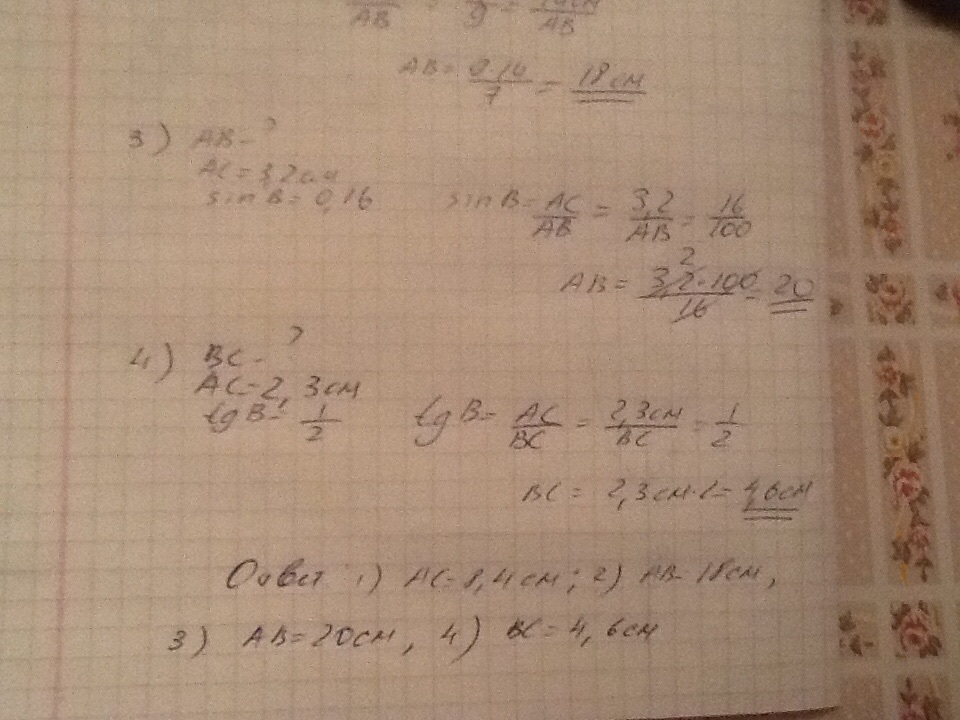 AB = 9 = AB
AB = 9·14 / 7 = 18 см
3) AB - ?
AC = 3,2 см
sin B = 0,16
sin B = AC / AB = 3,2 / AB = 16 / 100
AB = 3,2·100 / 16 = 20
2
4) BC - ?
AC = 2,3 см
tg B = 1 / 2
tg B = AC / BC = 2,3 см / BC = 1 / 2
BC = 2,3 см·2 = 4,6 см
Ответ 1) AC = 8,4 см; 2) AB = 18 см,
3) AB = 20 см, 4) BC = 4,6 см